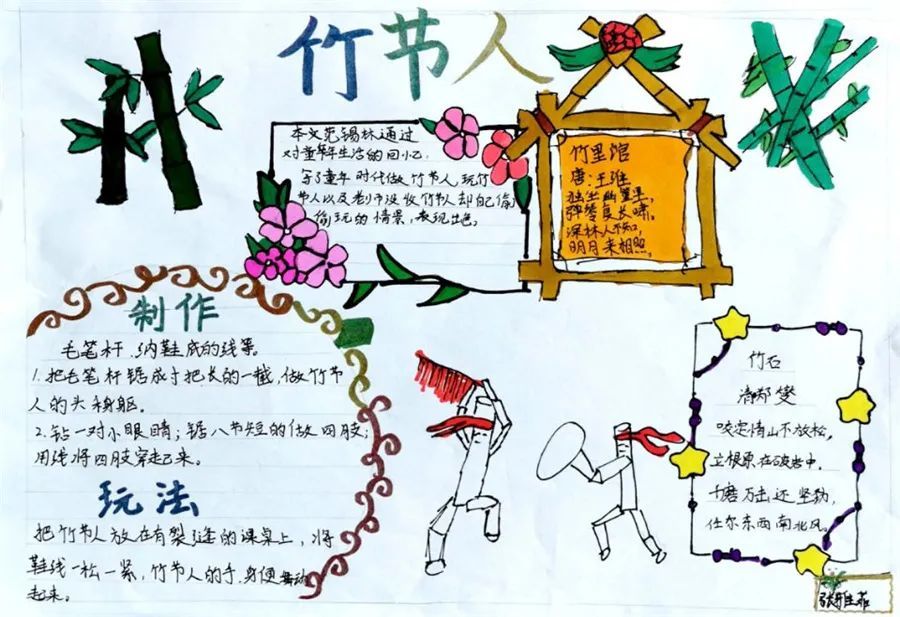 竹节人
本文范锡林通过
对童年生活的回忆,
写了童年时代做竹节人,玩竹
节人以及老师没收竹节人却自己偷
偷玩的情景,表现出色。
竹里馆
唐:王维
独坐幽篁里,
弹琴复长啸。
深林人不知,
明月来相照。
制作
毛笔杆、纳鞋底的线等。
1.把毛笔杆锯成寸把长的一截,做竹节
人的头和身躯。
2.钻一对小眼睛;锯八节短的做四肢;
用线将四肢穿起来。
玩法
把竹节人放在有裂缝的课桌上,将
鞋线一松一紧,竹节人的手、身便舞动
起来。
竹石
清郑燮
咬定情山不放松,
立根原在破岩中,
千磨万击还坚韧,
任尔东西南北风。
张雅菲